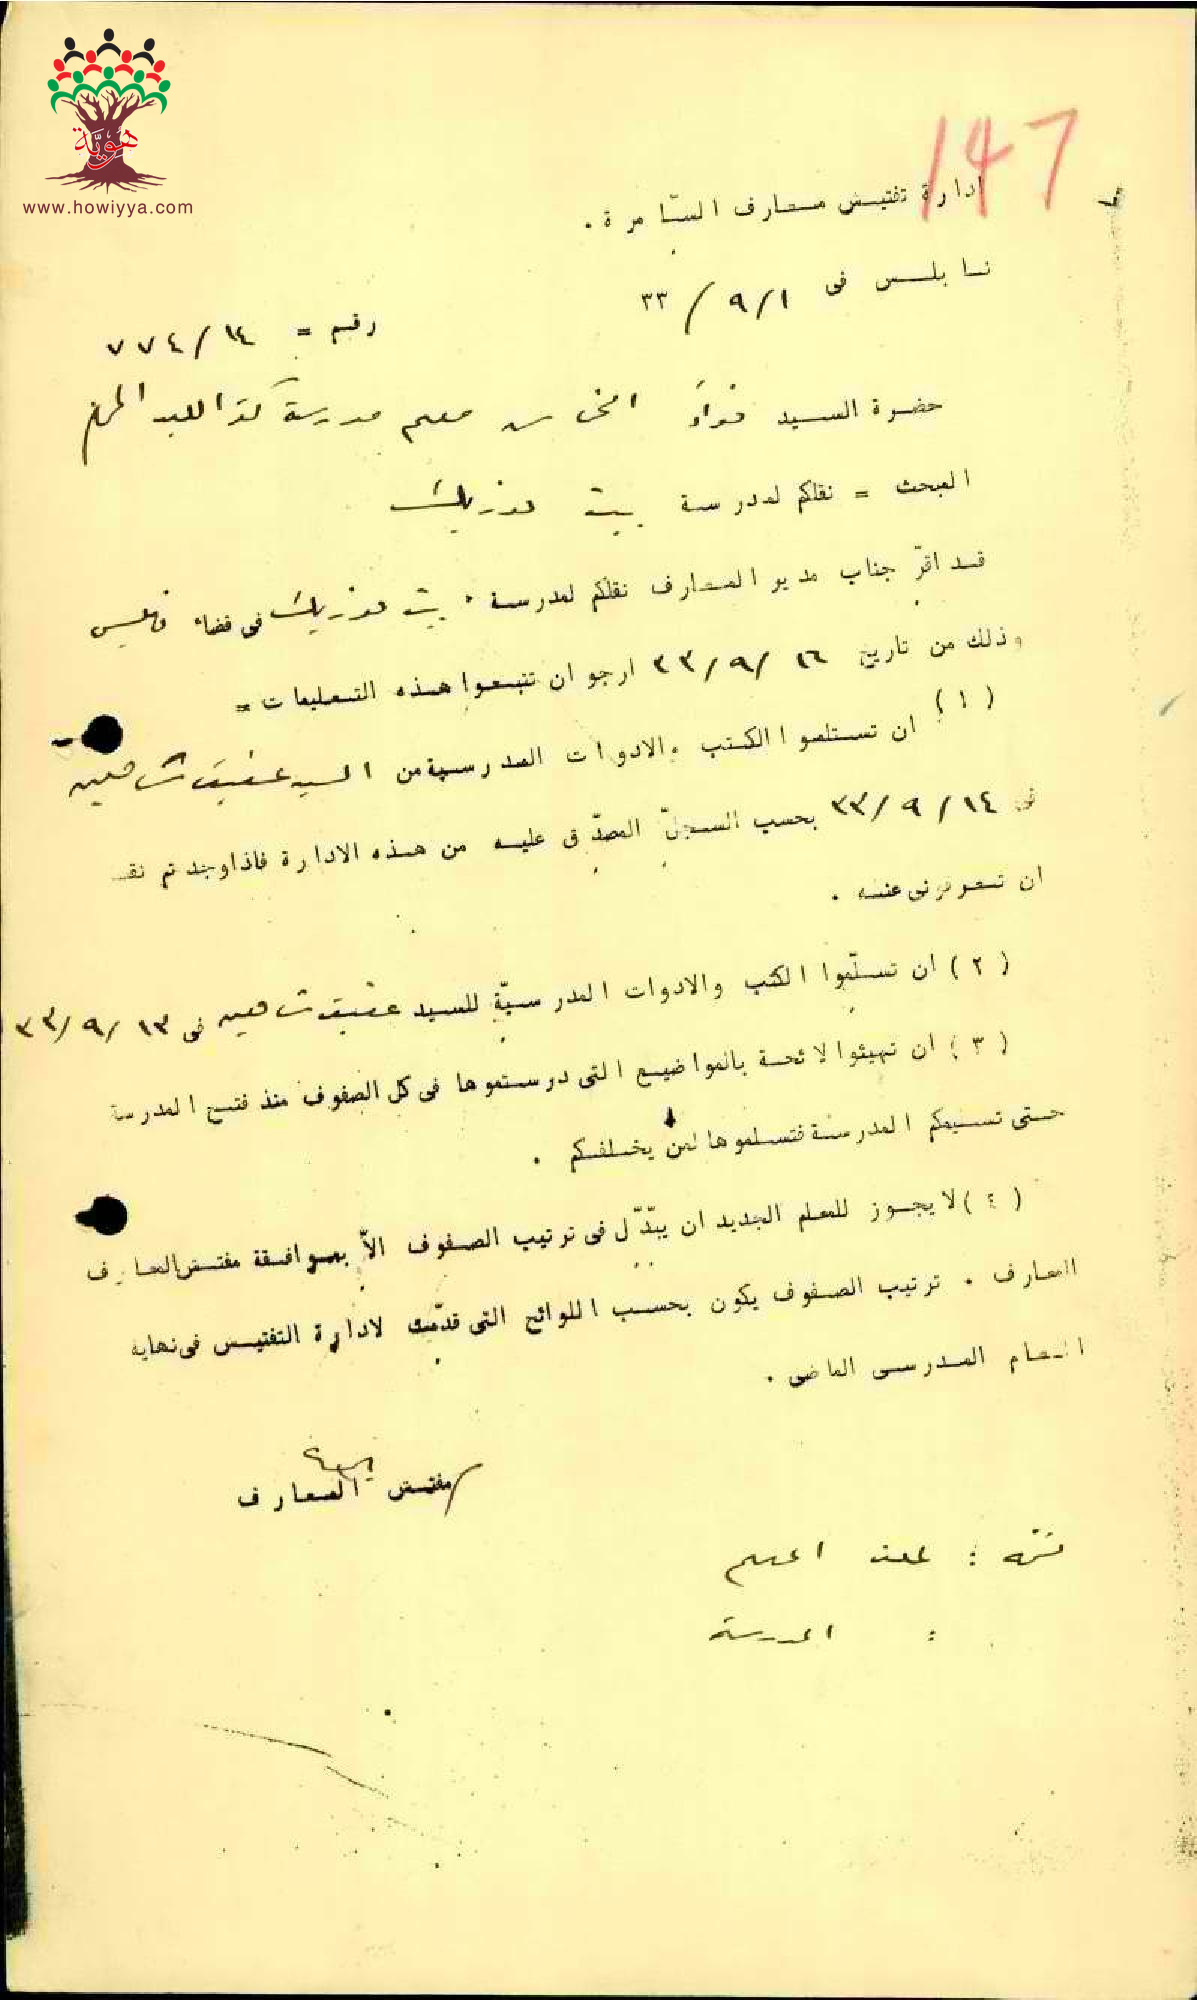 هوية
www.howiyya.com
147
ادارة تفتيش معارف السّامرة .
نابلس فى ٩/١/ ٣٣
رقم = ٧٧٤/١٤
حضرة السيد فؤاد معلم مدرسة كفر اللبد المحترم
البحث = نقلكم لمدرسة بيت فوريك
قد اقرّ جناب مدير المعارف نقلكم لمدرسة بيت فوريك فى قضاء نابلس
وذلك من تاريخ ١٦ /٩/ ٣٣ ارجو ان تتبعوا هذه التعليمات =
(١) ان تستلموا الكتب والادوات المدرسية من السيد عفيف شاهين
فى ١٤ /٩ /٣٣ بحسب السجلّ المصدّق عليه من هذه الادارة فاذا وجدتم نقـ
ان تعرفونى عنه .
(٢) ان تسلّموا الكتب والادوات المدرسيّة للسيد عفيف شاهين فى ١٣ /٩ /٣٣
(٣) ان تهيئوا لائحة بالمواضيع التى درستموها فى كل الصفوف منذ فتح المدرسة
حتى تسليمكم المدرسة فتسلموها لمن يخلفكم .
(٤) لا يجوز للمعلم الجديد ان يبدّل فى ترتيب الصفوف الاّ بموافقة مفتش المعارف
المعارف . ترتيب الصفوف يكون بحسب اللوائح التى قدّمت لادارة التفتيش فى نهاية
العام المدرسى الماضى .
مفتش المعارف
نسخة : لملف المعلم
: المدرسة